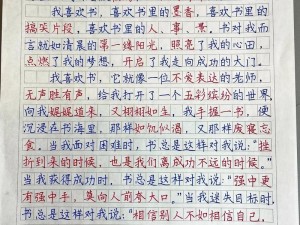 我喜欢书，喜欢书里的墨香，喜欢书里的
搞笑片段，喜欢书里的人、事、景，书对我而
言就如清晨的第一缕阳光，照亮了我的心田，
点燃了我的梦想，开启了我走向成功的大门。
我喜欢书，它就像一位不爱表达的老师，
无声胜有声，给我打开了一个五彩缤纷的世界，
向我娓娓道来，又栩栩如生，我手握一书，便
沉浸在书海里，那样如饥似渴，又那样废寝忘
食。当我面对困难时，书总是这样对我说：“挫
折到来的时候，也是我们离成功不远的时候。”
当我获得成功时，书总是这样对我说：“强中更
有强中手，莫向人前夸大口。”当我迷失目标时，
书总是这样对我说：“相信别人不如相信自己。